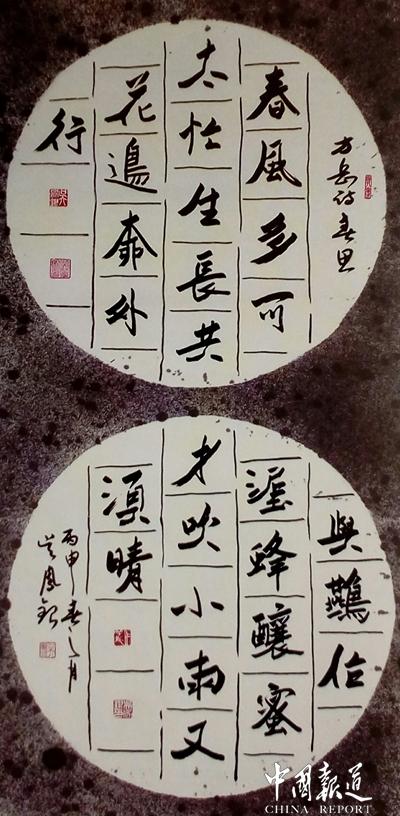 方岳詩春思
春風多可
太忙生長共
花邊柳外
行
與鷰作
泥蜂釀蜜
才吹小雨又
須晴
丙申春之月
吴鳳
中國報道
CHINA REPORT